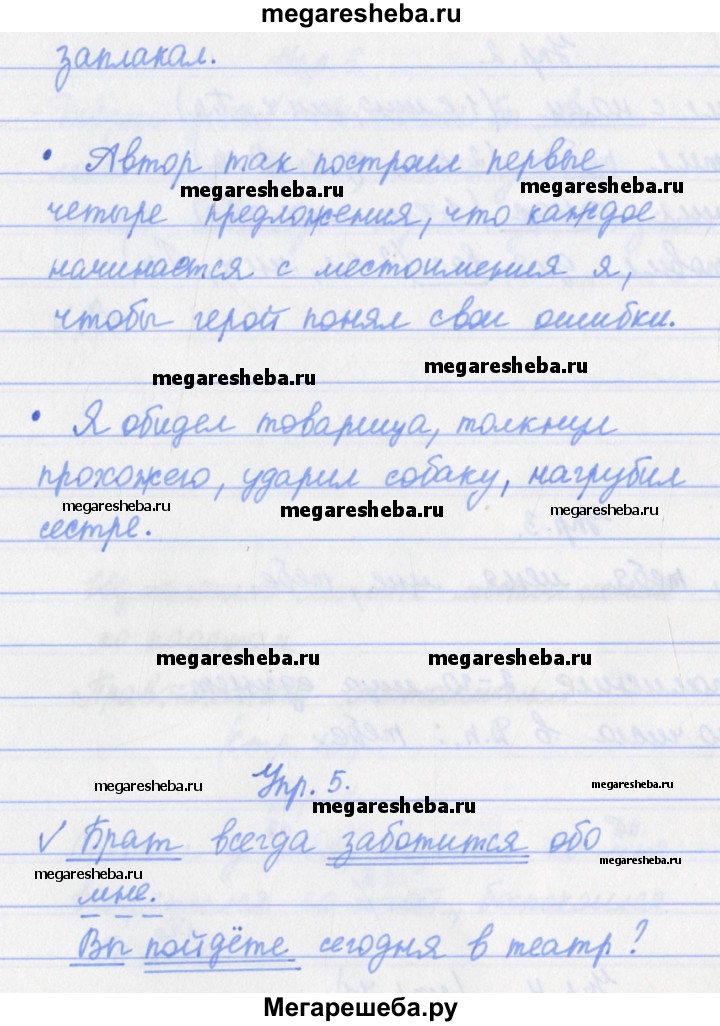 megaresheba.ru
заплакал.
• Автор так построил первые
megaresheba.ru megaresheba.ru
четыре предложения, что каждое
начинается с местоимения я,
чтобы герой понял свои ошибки.
megaresheba.ru megaresheba.ru
• Я обидел товарища, толкнул
прохожего, ударил собаку, нагрубил
megaresheba.ru megaresheba.ru megaresheba.ru
сестре.
megaresheba.ru megaresheba.ru
Упр. 5.
megaresheba.ru megaresheba.ru megaresheba.ru
√ Брат всегда заботится обо
megaresheba.ru megaresheba.ru
мне.
Вы пойдёте сегодня в театр?
Мегарешеба.ру